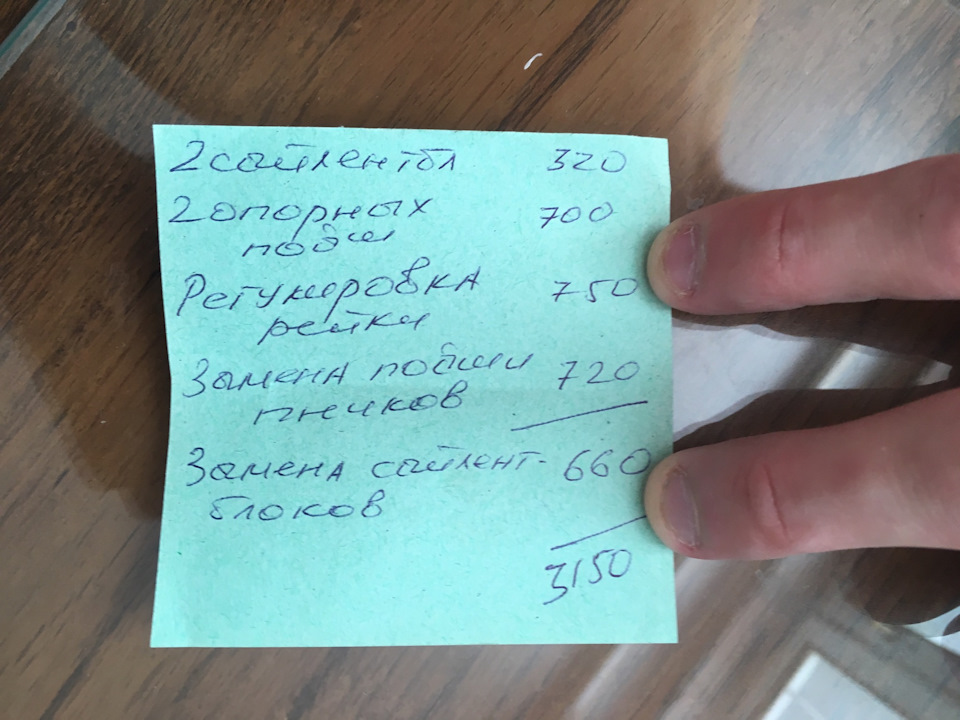 2 сайлентбл 320
2 опорных 700
подш
Регулировка 750
рейки
Замена подши 720
пников
Замена сайлент- 660
блоков
3150